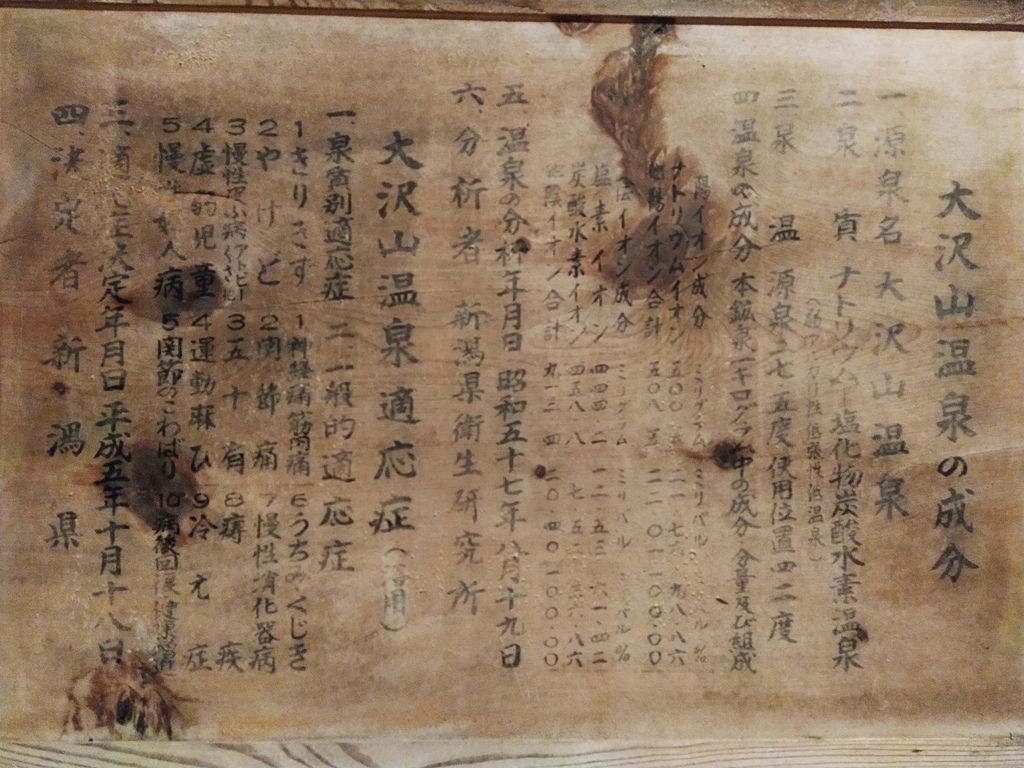 大沢山温泉の成分
一、源泉名 大沢山温泉
二 泉 質 ナトリウム-塩化物炭酸水素温泉
(弱アルカリ性低張性低温泉)
三 泉 温 源泉二七・五度使用位置四二度
四 温泉の成分 本鉱泉一キログラム中の成分 分量及び組成
陽イオン成分 ミリグラム ミリバル ミリバル%
ナトリウムイオン 五〇〇・ 二一・七 九八・八六
他陽イオン合計 五〇八・五 二二・〇一 一〇〇・〇〇
陰イオン成分 ミリグラム ミリバル ミリバル%
塩素イオン 四四四・二 一二・五三 六一・四二
炭酸水素イオン 四五八・八 七・五二 三六・八六
他陰イオン合計 九一三・四 二〇・四〇 一〇〇・〇〇
五、温泉の分析年月日 昭和五十七年八月十九日
六、分析者 新潟県衛生研究所
大沢山温泉適応症(浴用)
一、泉質別適応症 二、一般的適応症
1きりきず 1神経痛筋肉痛 6うちみくじき
2やけど 2関節痛 7慢性消化器病
3慢性皮ふ病 アトピー 3五十肩 8痔疾
4虚弱児童 4運動麻ひ 9冷え症
5慢性婦人病 5関節のこわばり 10病後回復健康増
三、適応症決定年月日 平成五年十月十八日
四、決定者 新潟県